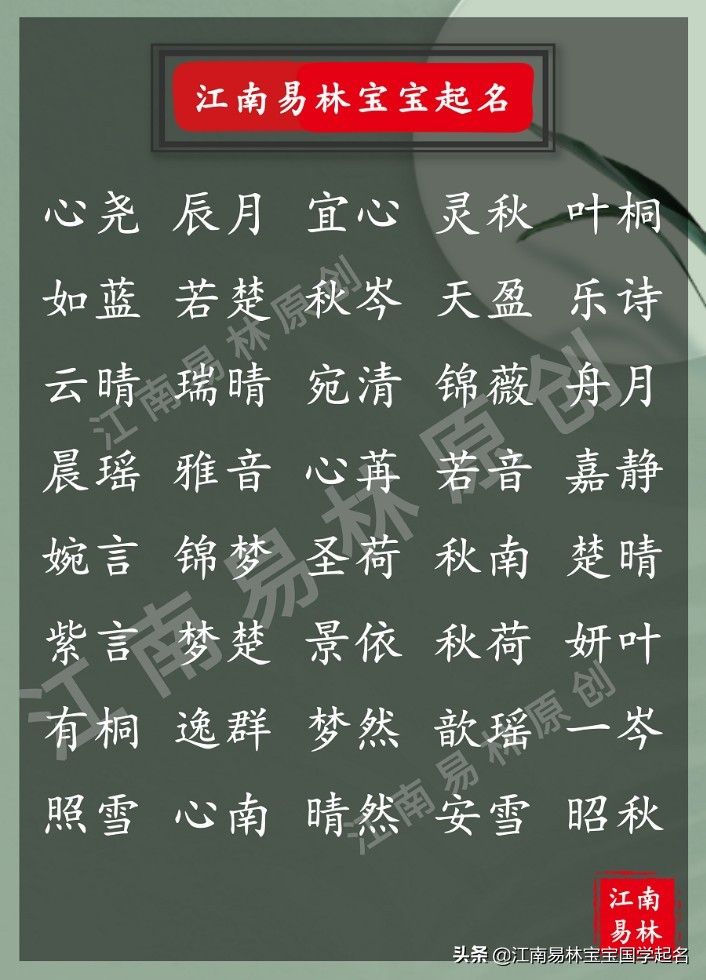 江南易林宝宝起名
心尧 辰月 宜心 灵秋 叶桐
如蓝 若楚 秋岑 天盈 乐诗
云晴 瑞晴 宛清 锦薇 舟月
晨瑶 雅音 心苒 若音 嘉静
婉言 锦梦 圣荷 秋南 楚晴
紫言 梦楚 景依 秋荷 妍叶
有桐 逸群 梦然 歆瑶 一岑
照雪 心南 晴然 安雪 昭秋
江南易林原创
江南易林原创
江南易林原创
江南
易林
头条 @江南易林宝宝国学起名